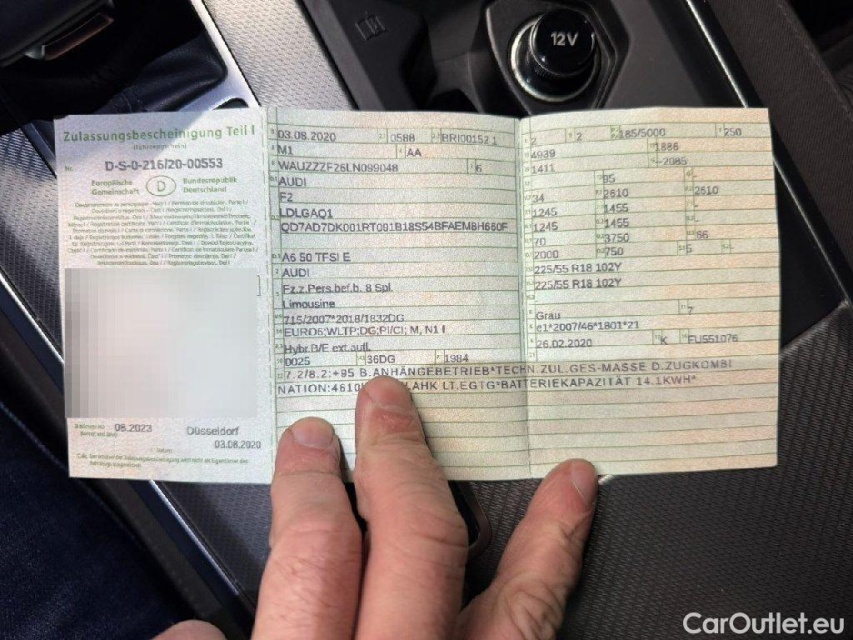 12V
Zulassungsbescheinigung Teil I
Nr. D-S-0-216/20-00553
Europäische Gemeinschaft
D
Bundesrepublik Deutschland
08.2023
Düsseldorf
03.08.2020
03.08.2020 0588 BRI00152 1
M1 AA
WAUZZZF26LN099048 6
AUDI
F2
LDLGAQ1
QD7AD7DK001RT001B18S54BFAEM8H660F
A6 50 TFSI E
AUDI
Fz.z.Pers.bef.b. 8 Spl.
Limousine
715/2007*2018/1832DG
EURO6;WLTP;DG;PI/CI; M, N1 I
Hybr.B/E ext.aufl.
0025 36DG 1984
7.2/8.2:+95 B.ANHÄNGEBETRIEB*TECHN.ZUL.GES-MASSE D.ZUGKOMBI
NATION:4610 AHK LT.EGTG*BATTERIEKAPAZITÄT 14.1KWH*
2 2 185/5000 250
4939 1886
1411 -2085
95
34 2610 2610
1245 1455
1245 1455
70 3750 66
2000 750 5
225/55 R18 102Y
225/55 R18 102Y
Grau 7
e1*2007/46*1801*21
26.02.2020 K FU551076
CarOutlet.eu